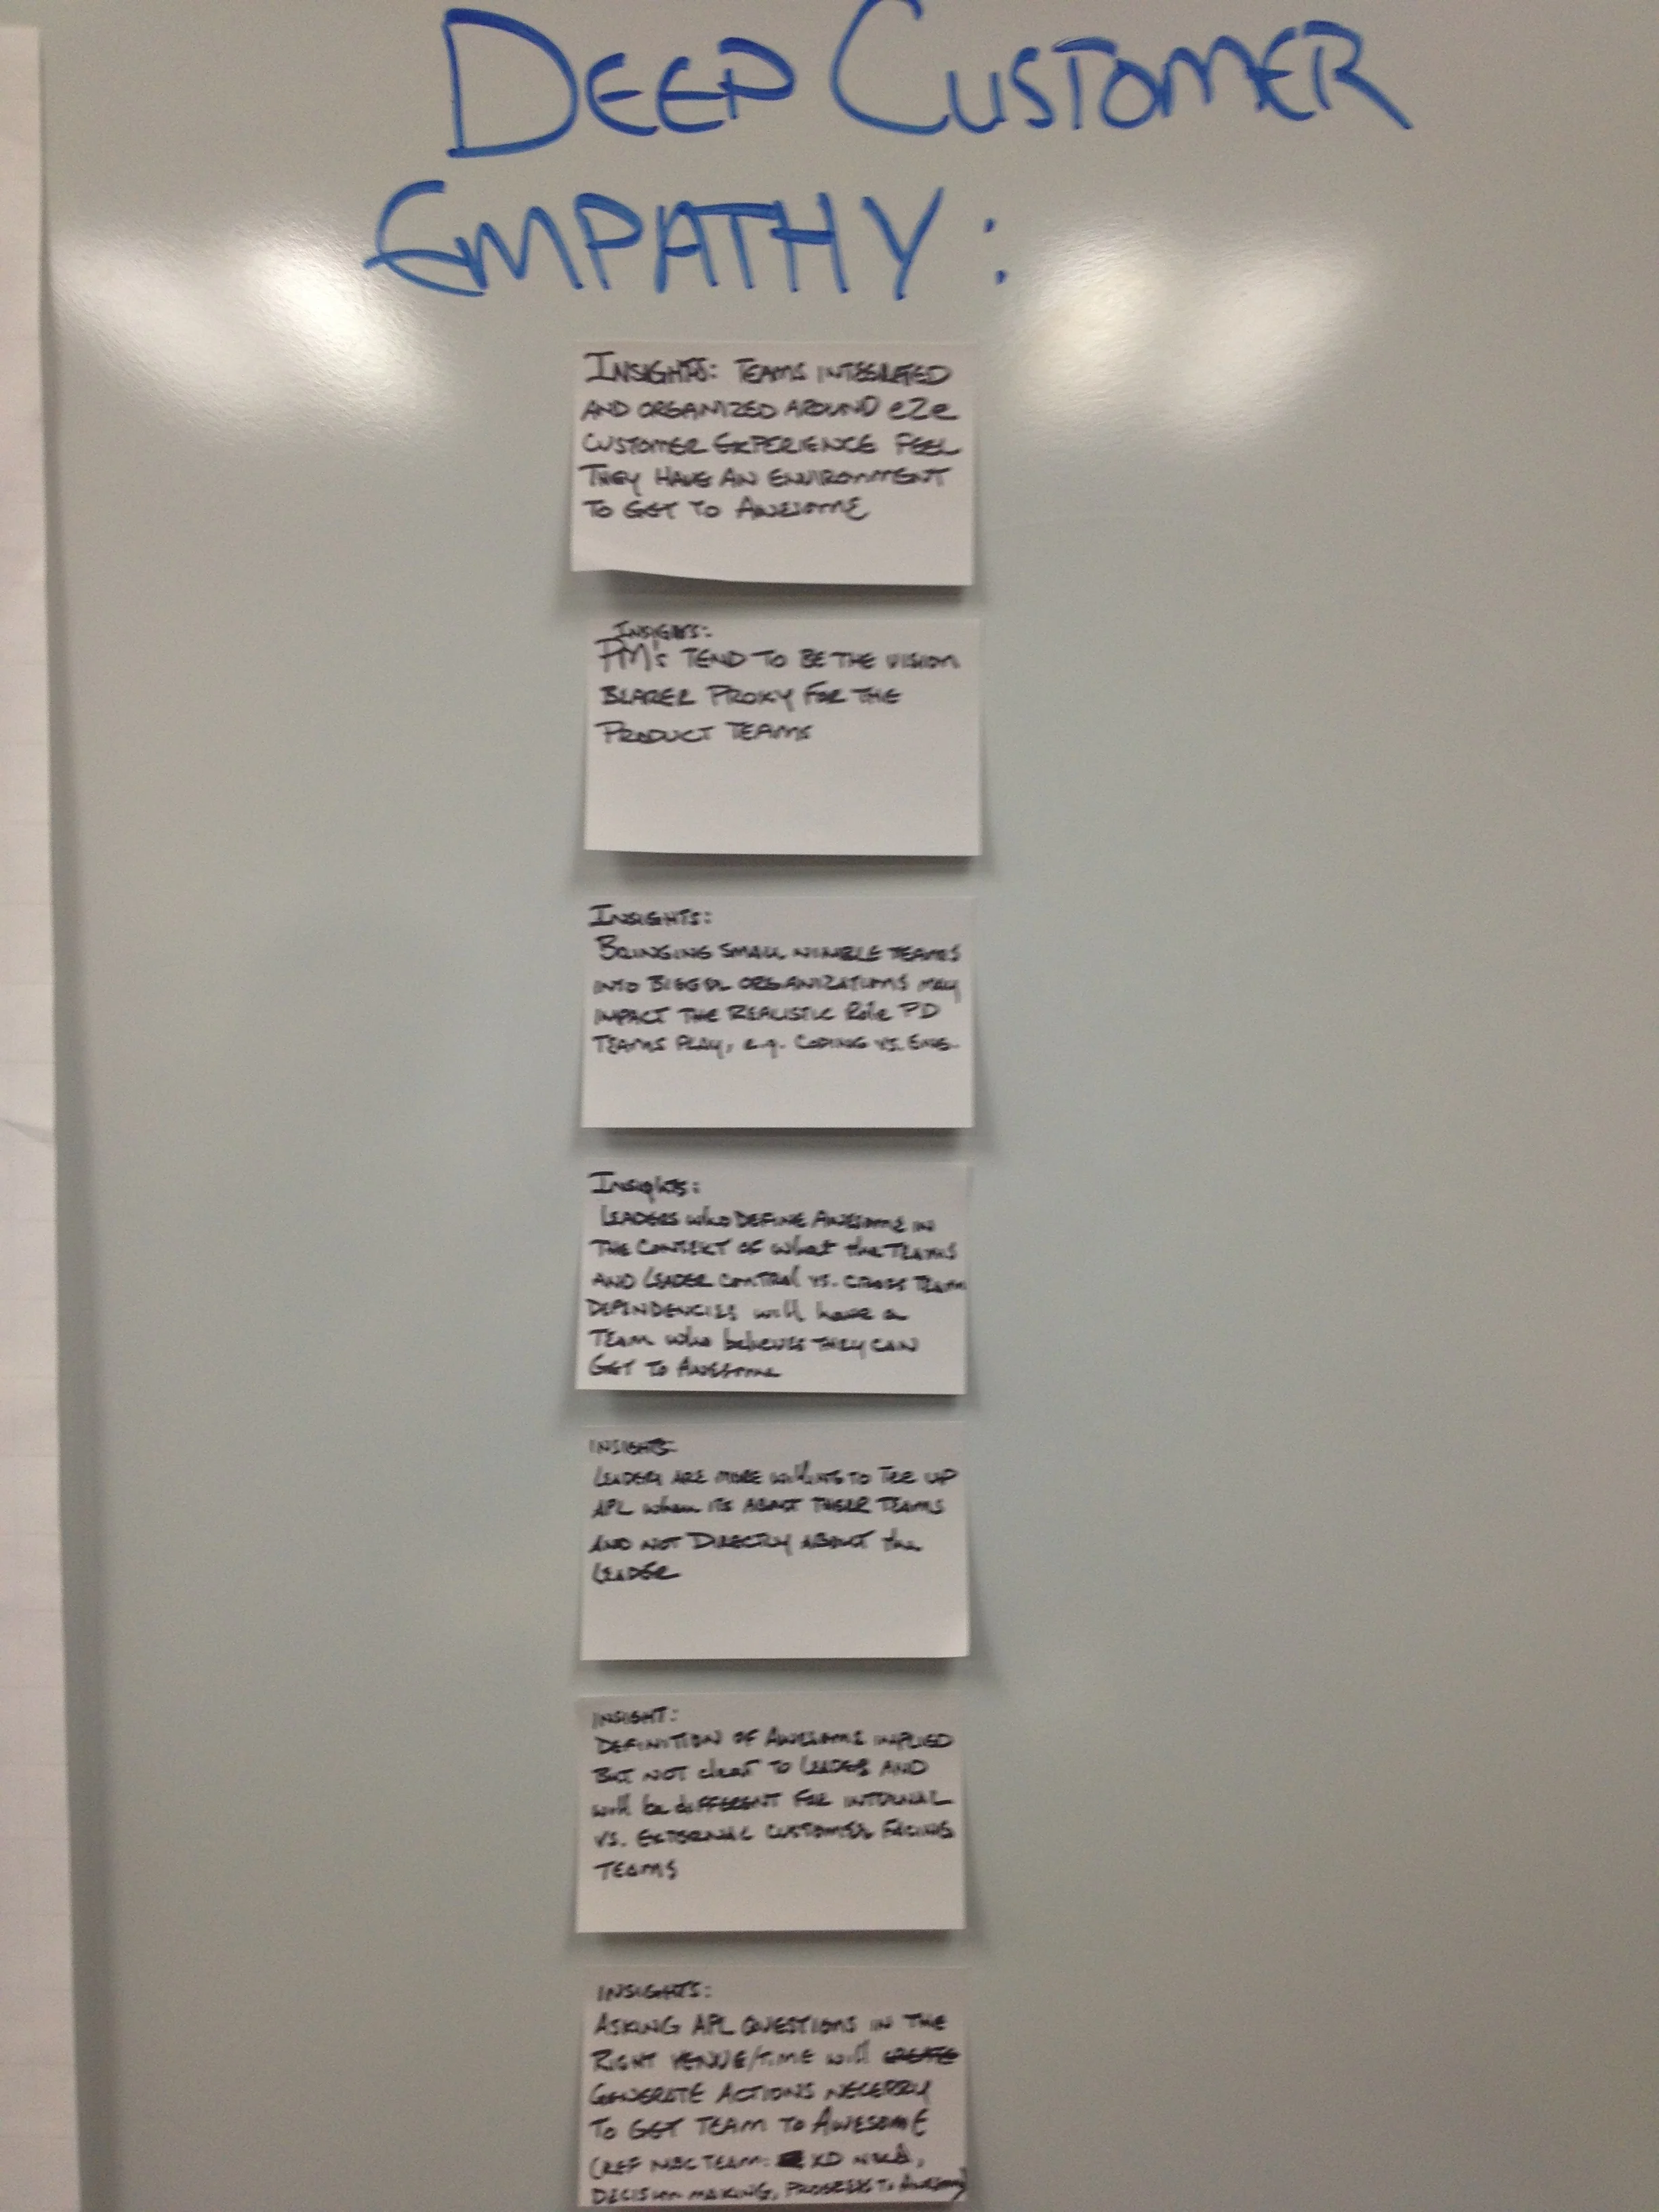 DEEP CUSTOMER
EMPATHY:
INSIGHTS: TEAMS INTEGRATED
AND ORGANIZED AROUND e2e
CUSTOMER EXPERIENCE FEEL
THEY HAVE AN ENVIRONMENT
TO GET TO AWESOME
INSIGHTS:
PM's TEND TO BE THE VISION
BEARER PROXY FOR THE
PRODUCT TEAMS
INSIGHTS:
BRINGING SMALL NIMBLE TEAMS
INTO BIGGER ORGANIZATIONS MAY
IMPACT THE REALISTIC Role PD
TEAMS PLAY, e.g. CODING VS. ENG.
Insights:
LEADERS WHO DEFINE AWESOME IN
THE CONTEXT OF What the TEAMS
AND LEADER CONTROL VS. CROSS TEAM
DEPENDENCIES will have a
TEAM who believes THEY CAN
GET TO AWESOME
INSIGHTS:
LEADERS ARE MORE WILLING TO TEE UP
APL when ITS ABOUT THEIR TEAMS
AND NOT DIRECTLY ABOUT the
LEADER
INSIGHT:
DEFINITION OF AWESOME IMPLIED
BUT NOT clear TO LEADER AND
will be DIFFERENT FOR INTERNAL
VS. EXTERNAL CUSTOMER FACING
TEAMS
INSIGHTS:
ASKING APL QUESTIONS IN THE
RIGHT VENUE/TIME will CREATE
GENERATE ACTIONS NECERRY
TO GET TEAM TO AWESOME
(REF MAC TEAM: XD
DECISION MAKING, PROGRESS TO AWESOME)